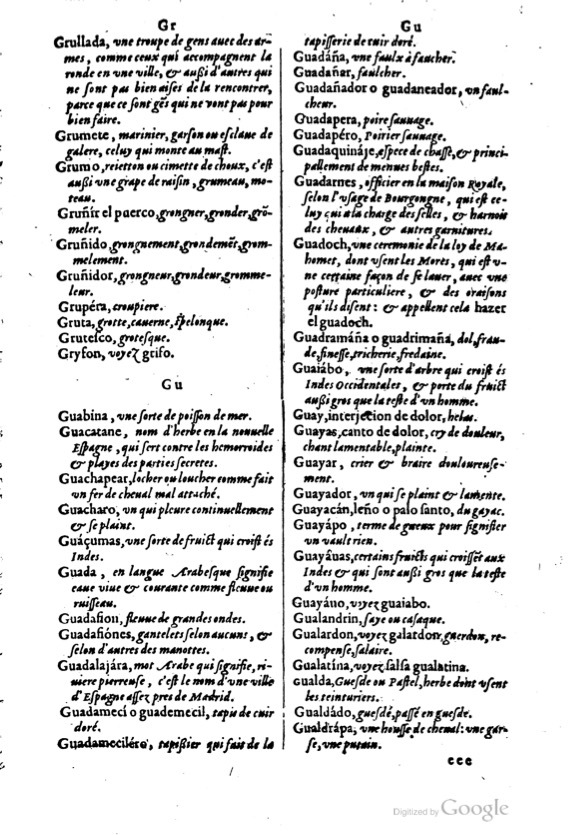 Gr
Grullada, vne troupe de gens auec des ar-
mes, comme ceux qui accompagnent la
ronde en vne ville, & außi d'autres qui
ne sont pas bien aises de la rencontrer,
parce que ce sont gẽs qui ne vont pas pour
bien faire.
Grumete, marinier, garson ou esclaue de
galere, celuy qui monte au mast.
Grumo, reietton ou cimette de choux, c'est
außi vne grape de raisin, grumeau, mo-
teau.
Gruñir el puerco, grongner, gronder, grõ-
meler.
Gruñido, grongnement, grondemẽt, grom-
melement.
Gruñidor, grongneur, grondeur, gromme-
leur.
Grupéra, croupiere.
Gruta, grotte, cauerne, spelonque.
Grutesco, grotesque.
Gryfon, voyez grifo.
Gu
Guabina, vne sorte de poisson de mer.
Guacatane, nom d'herbe en la nouuelle
Espagne, qui sert contre les hemorroides
& playes des parties secretes.
Guachapear, locher ou loucher comme fait
vn fer de cheual mal attaché.
Guacharo, vn qui pleure continuellement
& se plaint.
Guáçumas, vne sorte de fruict qui croist és
Indes.
Guada, en langue Arabesque signifie
eaue viue & courante comme fleuue ou
ruisseau.
Guadafion, fleuue de grandes ondes.
Guadafiónes, gantelets selon aucuns, &
selon d'autres des manottes.
Guadalajára, mot Arabe qui signifie, ri-
uiere pierreuse, c'est le nom d'vne ville
d'Espagne assez pres de Madrid.
Guadamecí o guademecil, tapis de cuir
doré.
Guadameciléro, tapißier qui fait de la
Gu
tapisserie de cuir doré.
Guadáña, vne faulx à faucher.
Guadañar, faulcher.
Guadañador o guadaneador, vn faul-
cheur.
Guadapera, poire sauuage.
Guadapéro, Poirier sauuage.
Guadaquináje, espece de chasse, & princi-
pallement de menues bestes.
Guadarnes, officier en la maison Royale,
selon l'vsage de Bourgongne, qui est ce-
luy qui a la charge des selles, & harnois
des cheuaux, & autres garnitures.
Guadoch, vne ceremonie de la loy de Ma-
homet, dont vsent les Mores, qui est v-
ne certaine façon de se lauer, auec vne
posture particuliere, & des oraisons
qu'ils disent: & appellent cela hazer
el guadoch.
Guadramáña o guadrimaña, dol, frau-
de, finesse, tricherie, fredaine.
Guaiábo, vne sorte d'arbre qui croist és
Indes Occidentales, & porte du fruict
außi gros que la teste d'vn homme.
Guay, interjection de dolor, helas.
Guayas, canto de dolor, cry de douleur,
chant lamentable, plainte.
Guayar, crier & braire douloureuse-
ment.
Guayador, vn qui se plaint & lamente.
Guayacán, leño o palo santo, du gayac.
Guayápo, terme de gueux pour signifier
vn vault rien.
Guayâuas, certains fruicts qui croissẽt aux
Indes & qui sont außi gros que la teste
d'vn homme.
Guayáuo, voyez guaiabo.
Gualandrin, saye ou casaque.
Gualardon, voyez galardon, guerdon, re-
compense, salaire.
Gualatína, voyez salsa gualatina.
gualda, Guesde ou Pastel, herbe dont vsent
les teinturiers.
Gualdádo, guesdé, passé en guesde.
Gualdrápa, vne housse de cheual: vne gar-
se, vne putain.
ccc
Digitized by Google